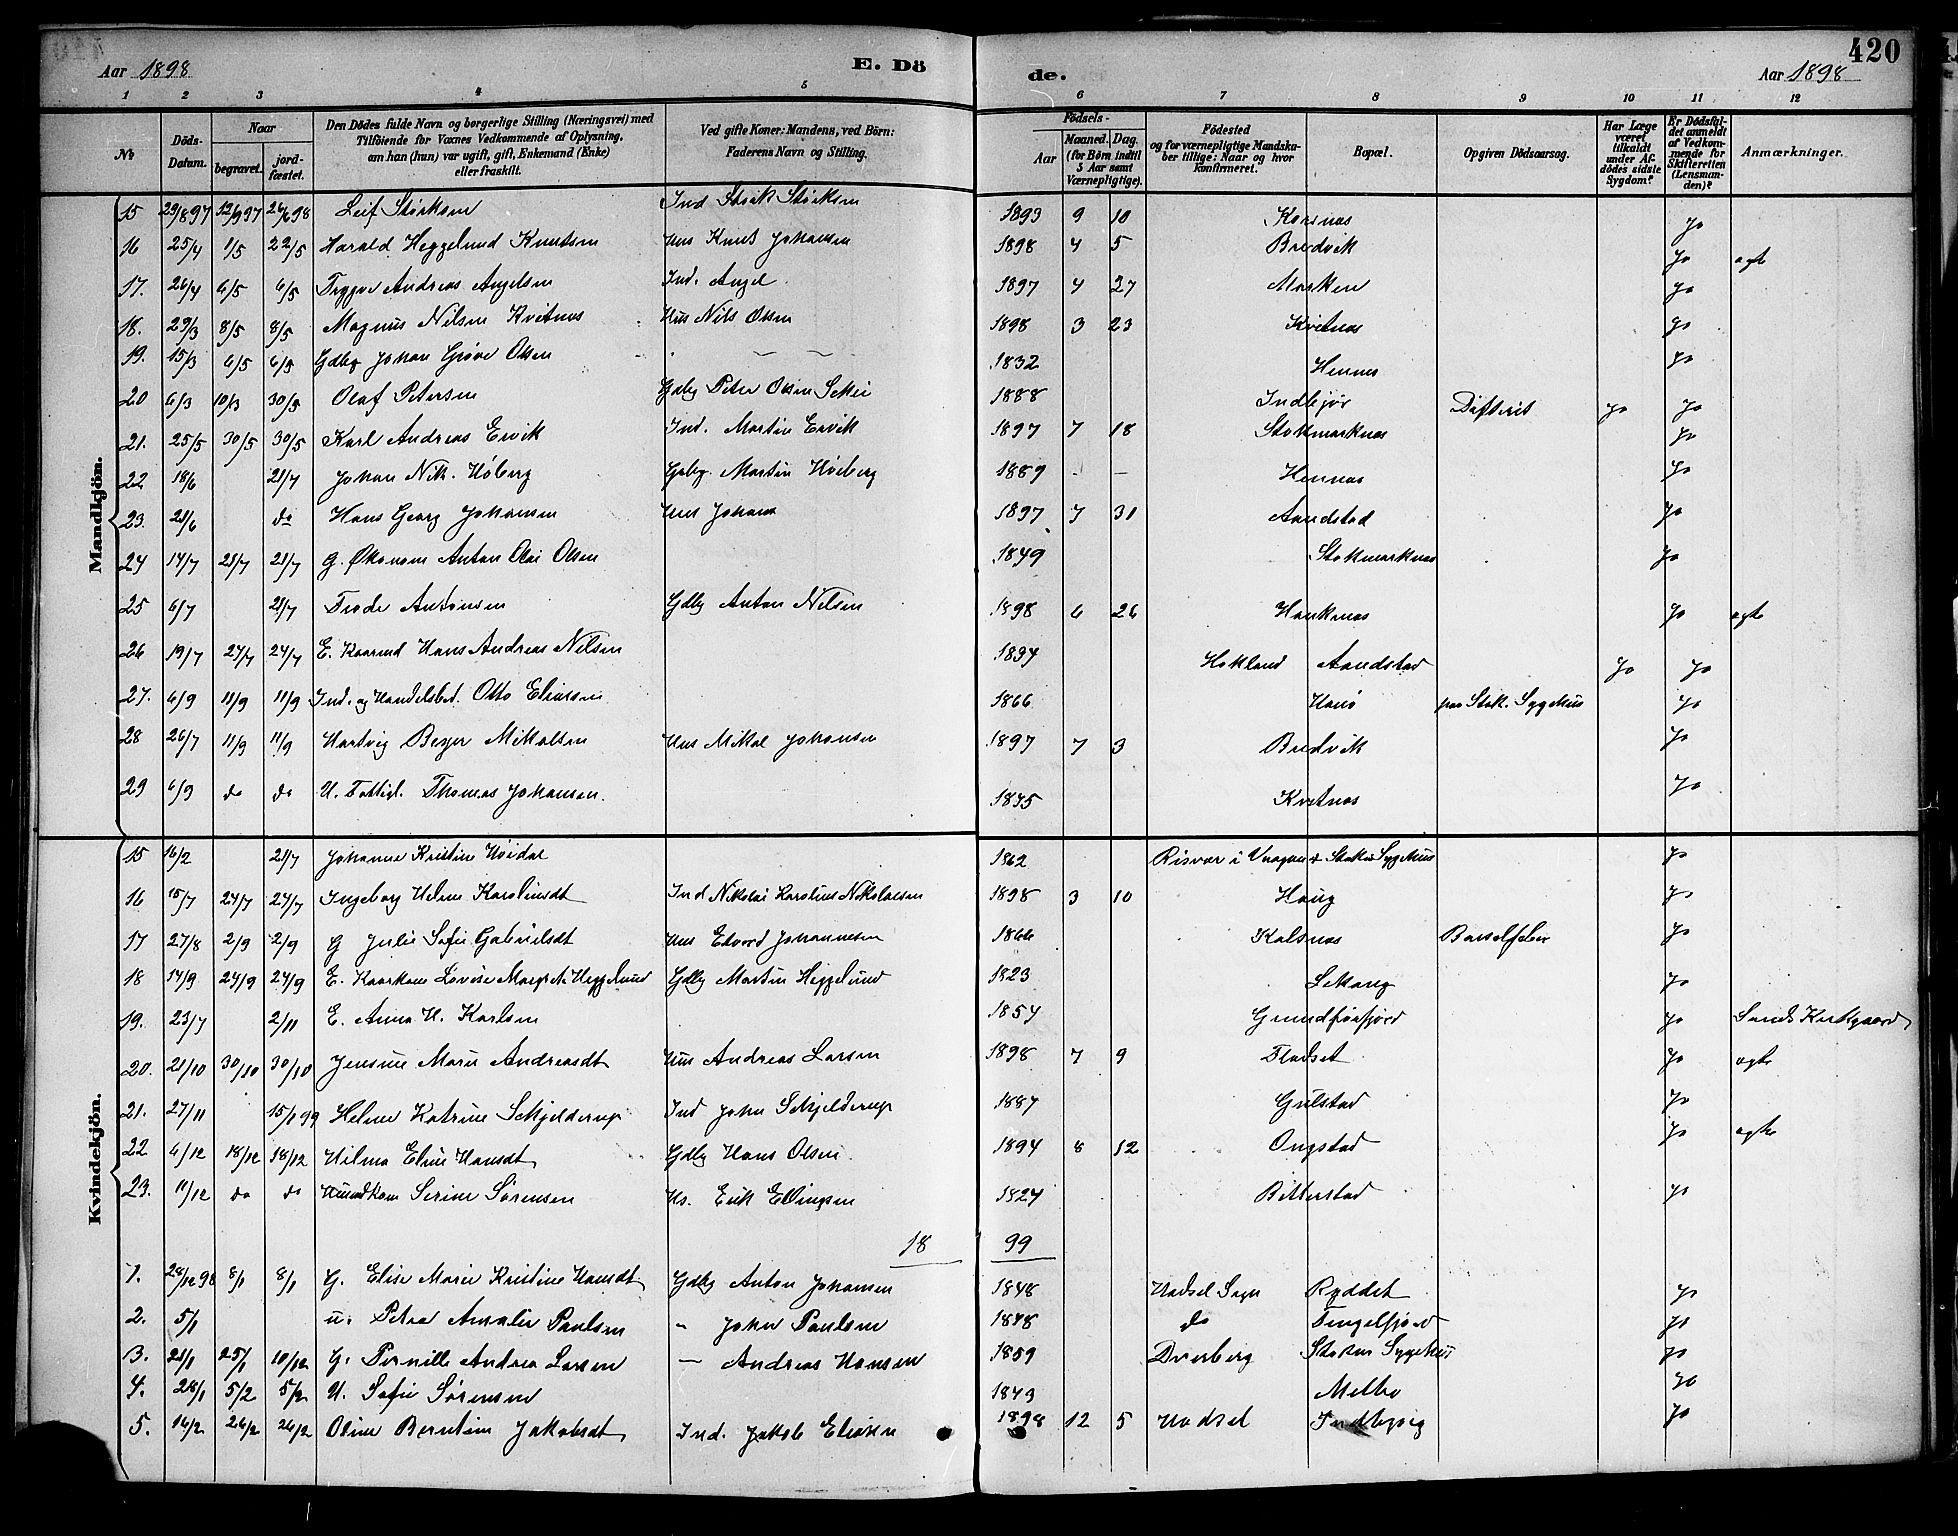 420
Aar 1898 E. Dö de. Aar 1898
1 2 3 4 5 6 7 8 9 10 11 12
No
Döds-Datum.
Naar begravet. jordfæstet.
Den Dödes fulde Navn og borgerlige Stilling (Næringsvei) med Tilföiende for Voxnes Vedkommende af Oplysning, om han (hun) var ugift, gift, Enkemand (Enke) eller fraskilt.
Ved gifte Koner: Mandens, ved Börn: Faderens Navn og Stilling.
Födsels- Aar Maaned. Dag. (for Börn indtil 5 Aar samt Værnepligtige).
Födested og for værnepligtige Mandskaber tillige: Naar og hvor konfirmeret.
Bopæl.
Opgiven Dödsaarsag.
Har Læge været tilkaldt under Afdödes sidste Sygdom?
Er Dödsfaldet anmeldt af Vedkommende for Skifteretten (Lensmanden)?
Anmærkninger.
Mandkjön.
15 29/8 97 12/9 97 26/6 98 Leif Störksen Ind Störk Störksen 1893 9 10 Korsnas Jo
16 25/4 1/5 22/5 Harald Heggelund Knutsen Hus Knut Johansen 1898 4 5 Bredvik Jo agte
17. 26/4 6/5 6/5 Trygve Andreas Angelsen Ind. Angel 1897 4 27 Masken Jo
18. 29/3 8/5 8/5 Magnus Nilsen Kvitnes Hus Nils Olsen 1898 3 23 Kvitnas Jo
19. 15/3 6/5 6/5 Gdbg Johan Gröve Olsen 1832 Hennes Jo
20 6/3 10/3 30/5 Olaf Petersen Gdbg Peter Olsen 1888 Indbjör Difterit Jo Jo
21. 25/5 30/5 30/5 Karl Andreas Ervik Ind. Martin Ervik 1897 7 18 Stokmarknas Jo
22 18/6 21/7 Johan Nik. Höberg Gdbg. Martin Höiberg 1889 - - Hennas Jo
23. 21/6 do Hans Georg Johansen Hus Johans 1897 7 31 Aandstad Jo
24 14/7 21/7 21/7 G. Ökonom Anton Olai Olsen 1849 Stokmarknas Jo
25 6/7 21/7 Trode Antonsen Gdbg Anton Nilsen 1898 6 26 Hauknas Jo agte
26 19/7 24/7 24/7 E. Kaarmd Hans Andreas Nilsen 1834 Hokland Aandstad Jo Jo
27. 6/9 11/9 11/9 Ind. og Handelsbet. Otto Eliassen 1866 Hanö paa Stok. Sygehus Jo
28 26/7 11/9 11/9 Hartvig Beyer Mikalsen Hus Mikal Johansen 1897 7 3 Bredvik Jo
29 6/9 do do U. Fattigl. Thomas Johansen. 1835 Kvitnas Jo
Kvindekjön.
15 16/2 21/7 Johanne Kristine Höidal 1862 Risvær i Vaagan Stokm Sygehus Jo
16 15/7 24/7 24/7 Ingeborg Helene Karolinedt Ind Nikolai Karolius Nikolaisen 1898 3 10 Haug Jo
17 27/8 2/9 2/9 G Julie Sofie Gabrielsdt Hus Edvard Johannesen 1866 Kalsnas Barselfeber Jo
18 14/9 24/9 24/9 E. Kaarkone Lovise Margrete Heggelund Gdbg Martin Heggelund 1823 Sekang Jo
19. 23/7 2/11 E. Anna H. Karlsen 1854 Grundförfjord Jo Sands Kirkgaard
20. 21/10 30/10 30/10 Jensine Marie Andreasdt Hus Andreas Larsen 1898 7 9 Fladset Jo agte
21. 27/11 15/1 99 Helene Katrine Schjelderup Ind John Schjelderup 1887 Gulstad Jo
22 6/12 18/12 18/12 Hilma Eline Hansdt Gdbg Hans Olsen 1894 8 12 Ongstad Jo agte
23. 11/12 do do Huusmkone Serine Sörensen Hs. Erik Ellingsen 1824 Bitterstad Jo
18 99
1. 28/12 98 8/1 8/1 G. Elise Marie Kristine Hansdt Gdbg Anton Johansen 1848 Hadsel Sogn Ryddet Jo
2. 5/1 u. Petra Amalie Paulsen " John Paulsen 1848 do Tengelfjord Jo
3. 21/1 25/1 10/12 G. Pernille Andrea Larsen — Andreas Hansen 1859 Dverberg Stokm Sygehus Jo
4. 28/1 5/2 5/2 U. Sofie Sörensen 1843 Melbo Jo
5. 14/2 26/2 26/2 Oline Berntine Jakobsdt Ind. Jakob Eliasen 1898 12 5 Hadsel Indbygvig Jo